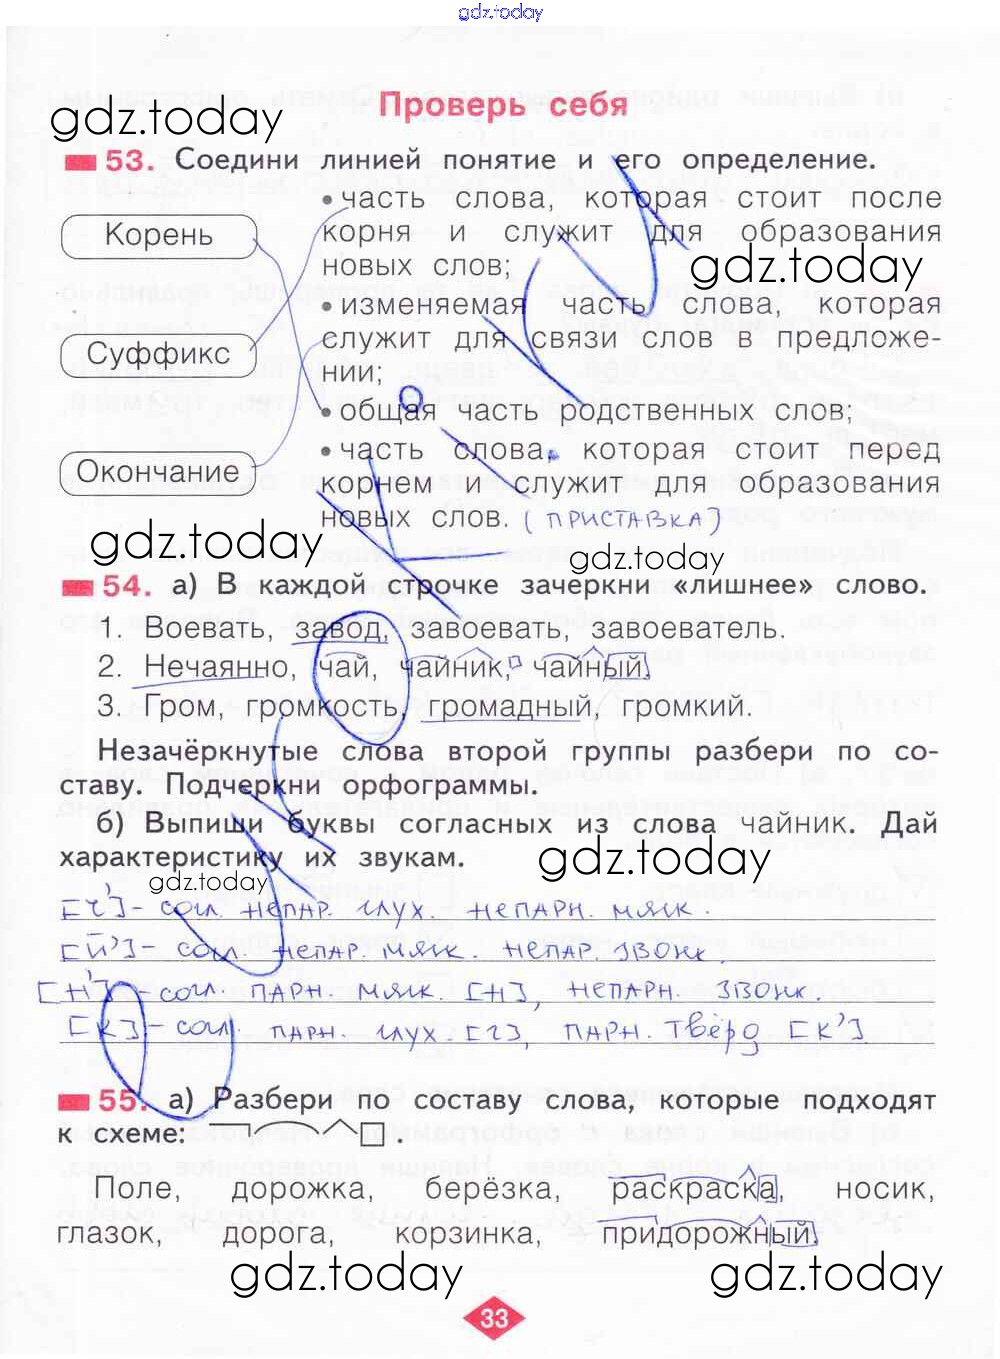 gdz.today
Проверь себя
gdz.today
53. Соедини линией понятие и его определение.
Корень
Суффикс
Окончание
• часть слова, которая стоит после
корня и служит для образования
новых слов;
gdz.today
• изменяемая часть слова, которая
служит для связи слов в предложе-
нии;
• общая часть родственных слов;
• часть слова, которая стоит перед
корнем и служит для образования
новых слов. (ПРИСТАВКА)
gdz.today
gdz.today
54. а) В каждой строчке зачеркни «лишнее» слово.
1. Воевать, завод, завоевать, завоеватель.
2. Нечаянно, чай, чайник, чайный.
3. Гром, громкость, громадный, громкий.
Незачёркнутые слова второй группы разбери по со-
ставу. Подчеркни орфограммы.
б) Выпиши буквы согласных из слова чайник. Дай
характеристику их звукам.
gdz.today
gdz.today
[Ч']- согл. непар. глух. непарн. мягк.
[Й']- согл. непар. мягк. непар. звонк.
[Н']- согл. парн. мягк. [Н], непарн. звонк.
[К]- согл. парн. глух. [Г], парн. твёрд [К']
55. а) Разбери по составу слова, которые подходят
к схеме:
Поле, дорожка, берёзка, раскраска, носик,
глазок, дорога, корзинка, придорожный.
gdz.today
gdz.today
33